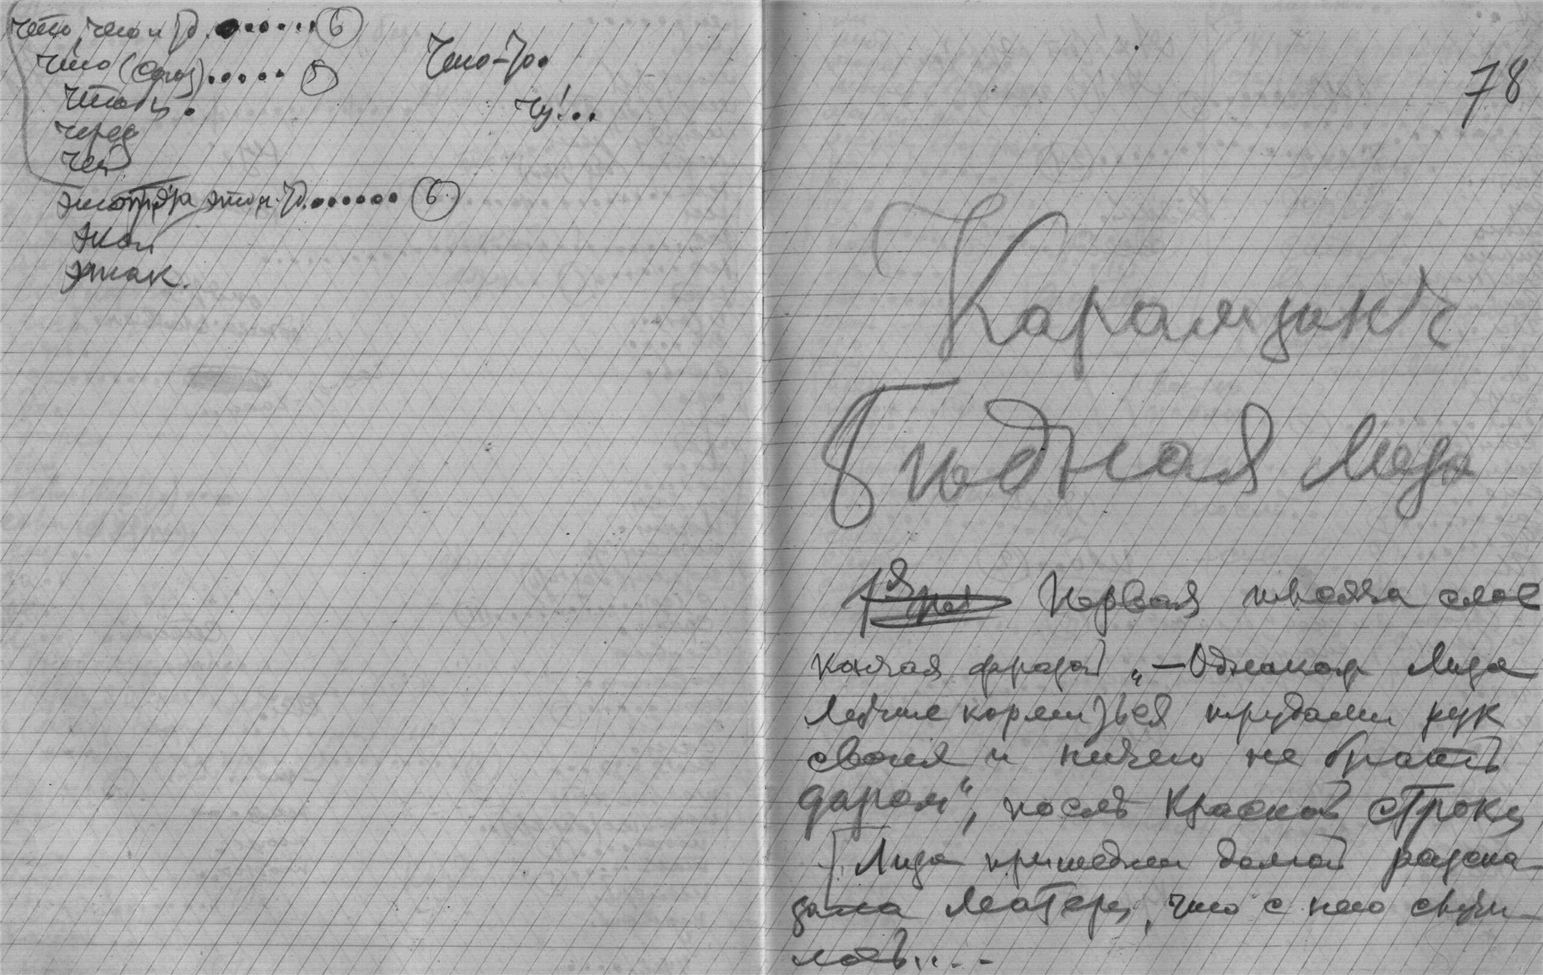 что, чего и т.д. ....... (6)
что (союз)...... (5)
чтоб.
через
чей
это, эта, эти и т.д. ....... (6)
экой
этак.
Что-то..
чу!...
78
Карамзинъ
Бѣдная Лиза
1ая Первая тысяча слов
кончая фразой „—Однакож Лиза
лучше кормиться трудами рук
своих и ничего не брать
даром“, послѣ красной строки
[Лиза пришедши домой разска-
зала матери, что с нею случи-
лось.....